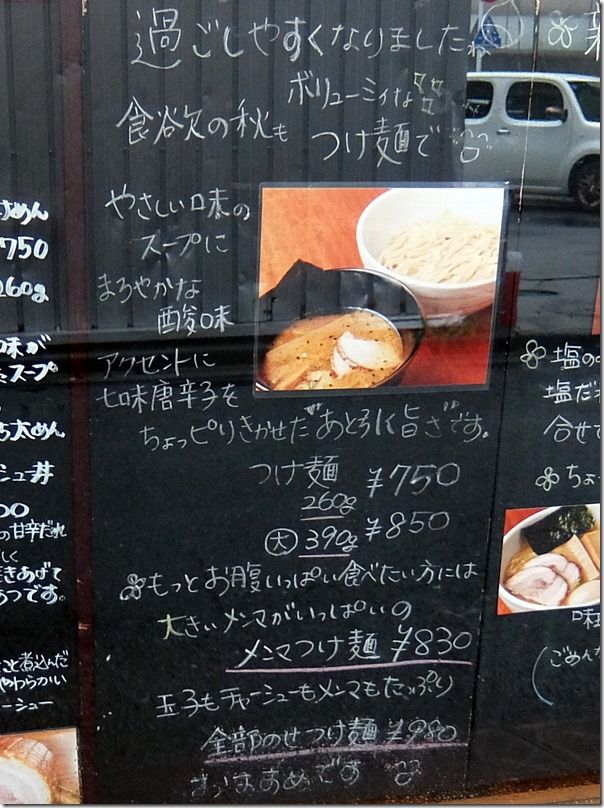 過ごしやすくなりました
ボリューミィな
食欲の秋も つけ麺で
やさしい味の
スープに
まろやかな
酸味
アクセントに
七味唐辛子を
ちょっピリきかせた"あとひく旨さ"です。
つけ麺 ¥750
260g
大 390g ¥850
もっとお腹いっぱい食べたい方には
大きいメンマがいっぱいの
メンマつけ麺 ¥830
玉子もチャーシューもメンマもたっぷり
全部のせつけ麺 ¥980
おすすめです
めん
750
260g
味が
スープ
太めん
シュー丼
00
の甘辛だれ
しく
きあげて
つです。
こと煮込んだ
やわらかい
ーシュー
塩の
塩だ
合せて
ちょ
味玉
(ごめん